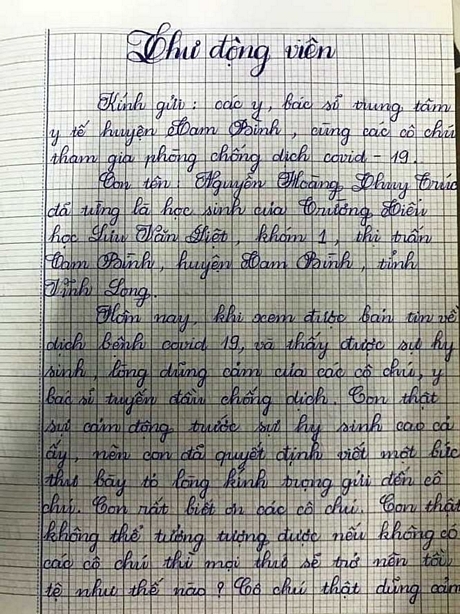 Thư động viên
Kính gửi : các y, bác sĩ trung tâm
y tế huyện Tam Bình, cùng các cô chú
tham gia phòng chống dịch covid - 19.
Con tên : Nguyễn Hoàng Thuy Trúc
đã từng là học sinh của Trường Tiểu
học Lưu Văn Liệt, khóm 1, thị trấn
Tam Bình, huyện Tam Bình, tỉnh
Vĩnh Long.
Hôm nay, khi xem được bản tin về
dịch bệnh covid 19, và thấy được sự hy
sinh, lòng dũng cảm của các cô chú, y
bác sĩ tuyến đầu chống dịch. Con thật
sự cảm động trước sự hy sinh cao cả
ấy, nên con đã quyết định viết một bức
thư bày tỏ lòng kính trọng gửi đến cô
chú. Con rất biết ơn các cô chú. Con thật
không thể tưởng tượng được nếu không có
các cô chú thì mọi thứ sẽ trở nên tồi
tệ như thế nào ? Cô chú thật dũng cảm